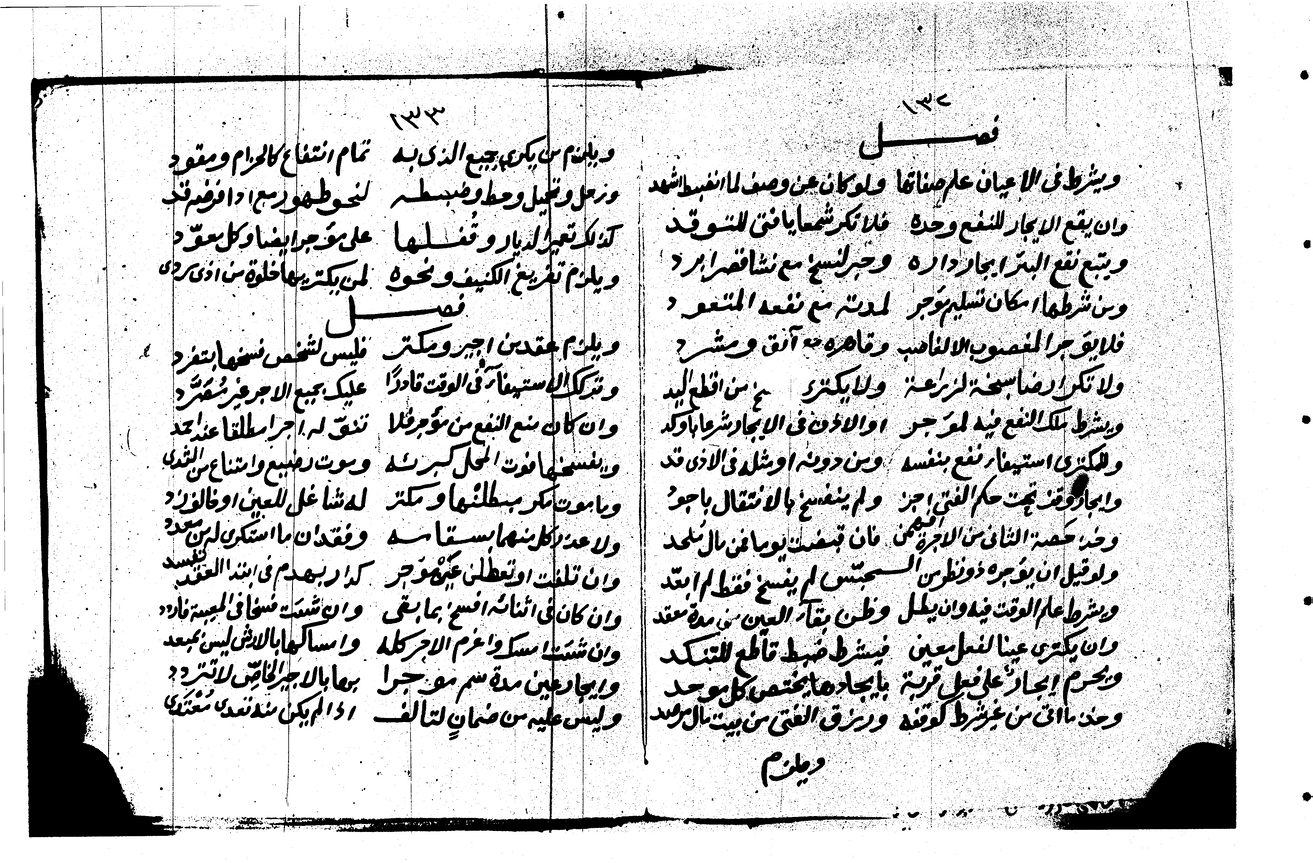 ١٣٢
فصل
ويشرط في الاعيان علم صفاتها ولو كان عن وصف لما انضبط اشهد
وان يقع الايجار للنفع وحده فلا تكر شمعا يا فتى للتوقد
ويتبع نقع البئر ايجار داره وحبر لنسخ مع
ومن شرطها امكان تسليم مؤجر لمدته مع نفعه المتعود
فلا يؤجر المغصوب الا لغاصب وقاهره مع آبق ومشرد
ولا تكر ارضا سبخة لزراعة ولا يكترى من اقطع اليد
ويشرط ملك النفع فيه لمؤجر او الاذن في الايجار شرعا باوكد
وللمكترى استيفاء نفع بنفسه ومن دونه او مثله في الاذى قد
وايجار وقف تحت حكم الفتى اجز ولم ينفسخ بالانتقال باجود
وخذ حصة الثاني من الاجرة افهمن فان قبضت يوما فمن مال ملحد
ولو قيل ان يؤجره ذو نظر من لم يفسخ فقط لم ابعد
ويشرط علم الوقت فيه وان يطل وظن بقاء العين في مدة معقد
وان يكترى عينا لفعل معين فيشرط ضبط قاطع للتنكد
ويحرم ايجار على فعل قربة بايجادها يختص كل موحد
وخذ ما اتى من غير شرط كوقفه ورزق الفتى من بيت مال مرصد
ويلزم
١٣٣
ويلزم من يكرى جميع الذى به تمام انتفاع كالحزام ومقود
ورحل وتحميل وحط وضبطه لنحو طهور مع ادا فرضه قد
كذلك تعمير الديار وقفلها على مؤجر ايضا وكل معود
ويلزم تفريغ الكنيف ونحوه لمن يكتريها خلوة من اذى ردى
فصل
ويلزم عقد من اجير ومكتر فليس لشخص فسخها بتفرد
وتركك الاستيفاء في الوقت قادرا عليك بجميع الاجر غير مصرد
وان كان منع النفع من مؤجر فلا تنق له اجرا مطلقا عند احمد
ويفسخها فوت المحل كبرئه وموت رضيع وامتناع من الثدى
وما موت مكر مبطلنها ومكتر
ولا عذر كل منهما بسقامه وفقدان ما استكرى له
وان تلفت او تعطلن عين مؤجر كدار بهدم في ابتدا العقد
وان كان في اثنائه افسخ بما بقى وان شئت فسخا في المعيبة فاردد
وان شئت امسك واغرم الاجر كله وامساكها بالارش ليس بمبعد
وايجار عين مدة سم مؤجرا بها بالاجير الخاص لا تتردد
وليس عليه من ضمان لتالف اذا لم يكن منه تعدى معتدى